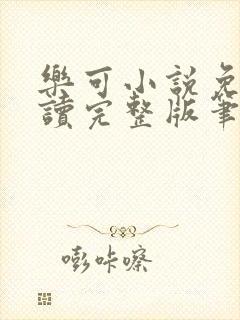 樂可小說免
讀完整版筆
嘭咔嚓